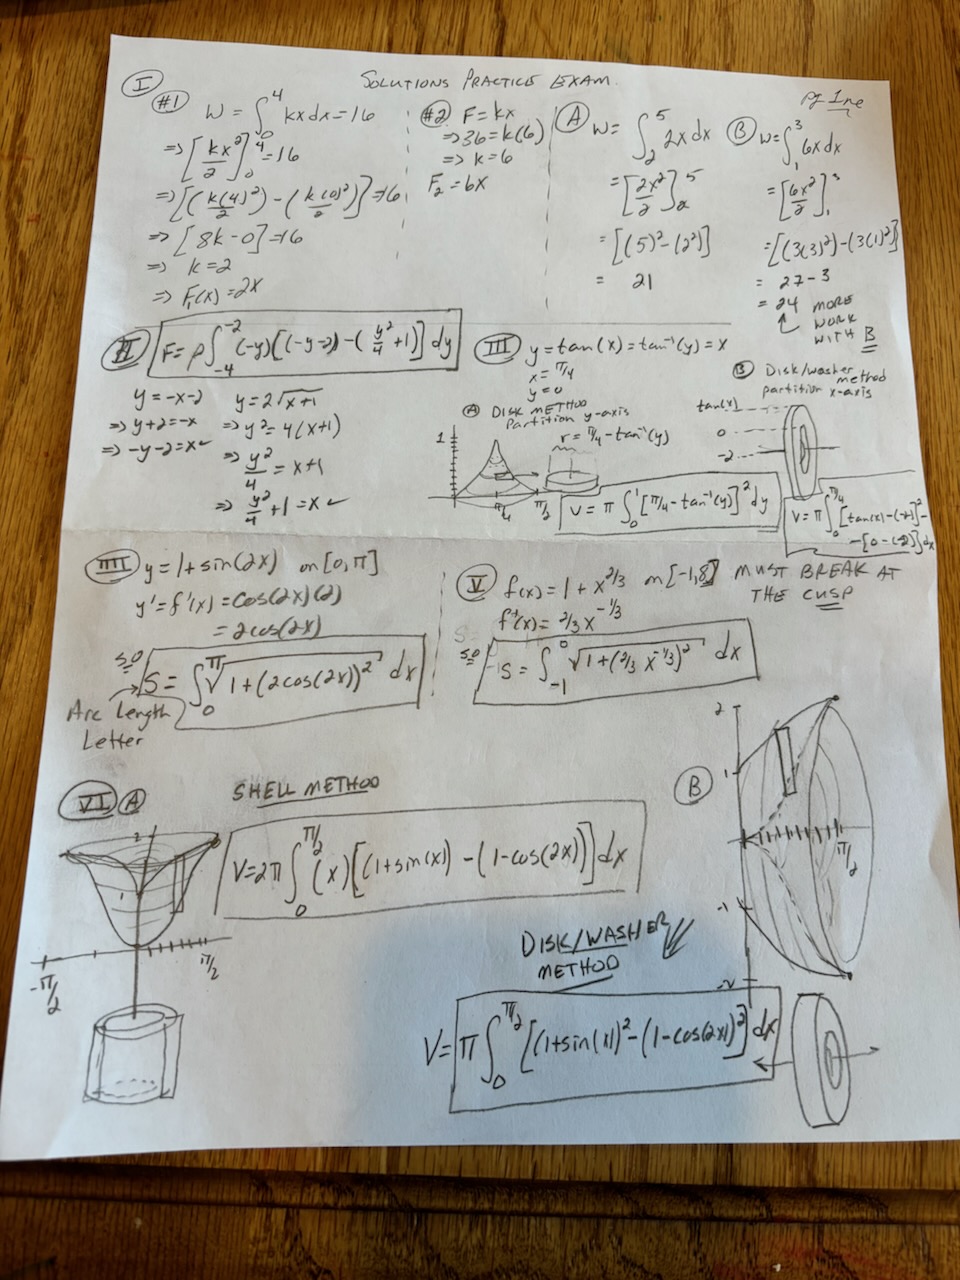 SOLUTIONS PRACTICE EXAM.
pg 1ne
I
#1 W = ∫₀⁴ kx dx = 16
⇒ [kx²/2]₀⁴ = 16
⇒ [(k(4)²/2) - (k(0)²/2)] = 16
⇒ [8k - 0] = 16
⇒ k = 2
⇒ F₁(x) = 2x
#2 F = kx
⇒ 36 = k(6)
⇒ k = 6
F₂ = 6x
A W = ∫₂⁵ 2x dx
= [2x²/2]₂⁵
= [(5)² - (2²)]
= 21
B W = ∫₁³ 6x dx
= [6x²/2]₁³
= [(3(3)²) - (3(1)²)]
= 27 - 3
= 24 MORE
WORK
WITH B
II F = ρ ∫₋₄⁻² (-y)[(-y-2) - (y²/4 + 1)] dy
y = -x-2
⇒ y+2 = -x
⇒ -y-2 = x ✓
y = 2√(x+1)
⇒ y² = 4(x+1)
⇒ y²/4 = x+1
⇒ y²/4 + 1 = x ✓
III y = tan(x) = tan⁻¹(y) = x
x = π/4
y = 0
A DISK METHOD
Partition y-axis
r = π/4 - tan⁻¹(y)
1
π/4 π/2
V = π ∫₀¹ [π/4 - tan⁻¹(y)]² dy
B Disk/washer method
partition x-axis
tan(x)
0
-2
V = π ∫₀^(π/4) [tan(x) - (-2)]² -
- [0 - (-2)]² dx
IIII y = 1 + sin(2x) on [0, π]
y' = f'(x) = cos(2x)(2)
= 2cos(2x)
so S = ∫₀^π √(1 + (2cos(2x))²) dx
Arc Length
Letter
V f(x) = 1 + x^(2/3) on [-1, 8] MUST BREAK AT
THE CUSP
f'(x) = 2/3 x^(-1/3)
so S = ∫₋₁⁰ √(1 + (2/3 x^(-1/3))²) dx
VI A
SHELL METHOD
V = 2π ∫₀^(π/2) (x)[(1+sin(x)) - (1-cos(2x))] dx
2
1
-π/2
π/2
B
2
1
-1
-2
π/2
DISK/WASHER
METHOD
V = π ∫₀^(π/2) [(1+sin(x))² - (1-cos(2x))²] dx